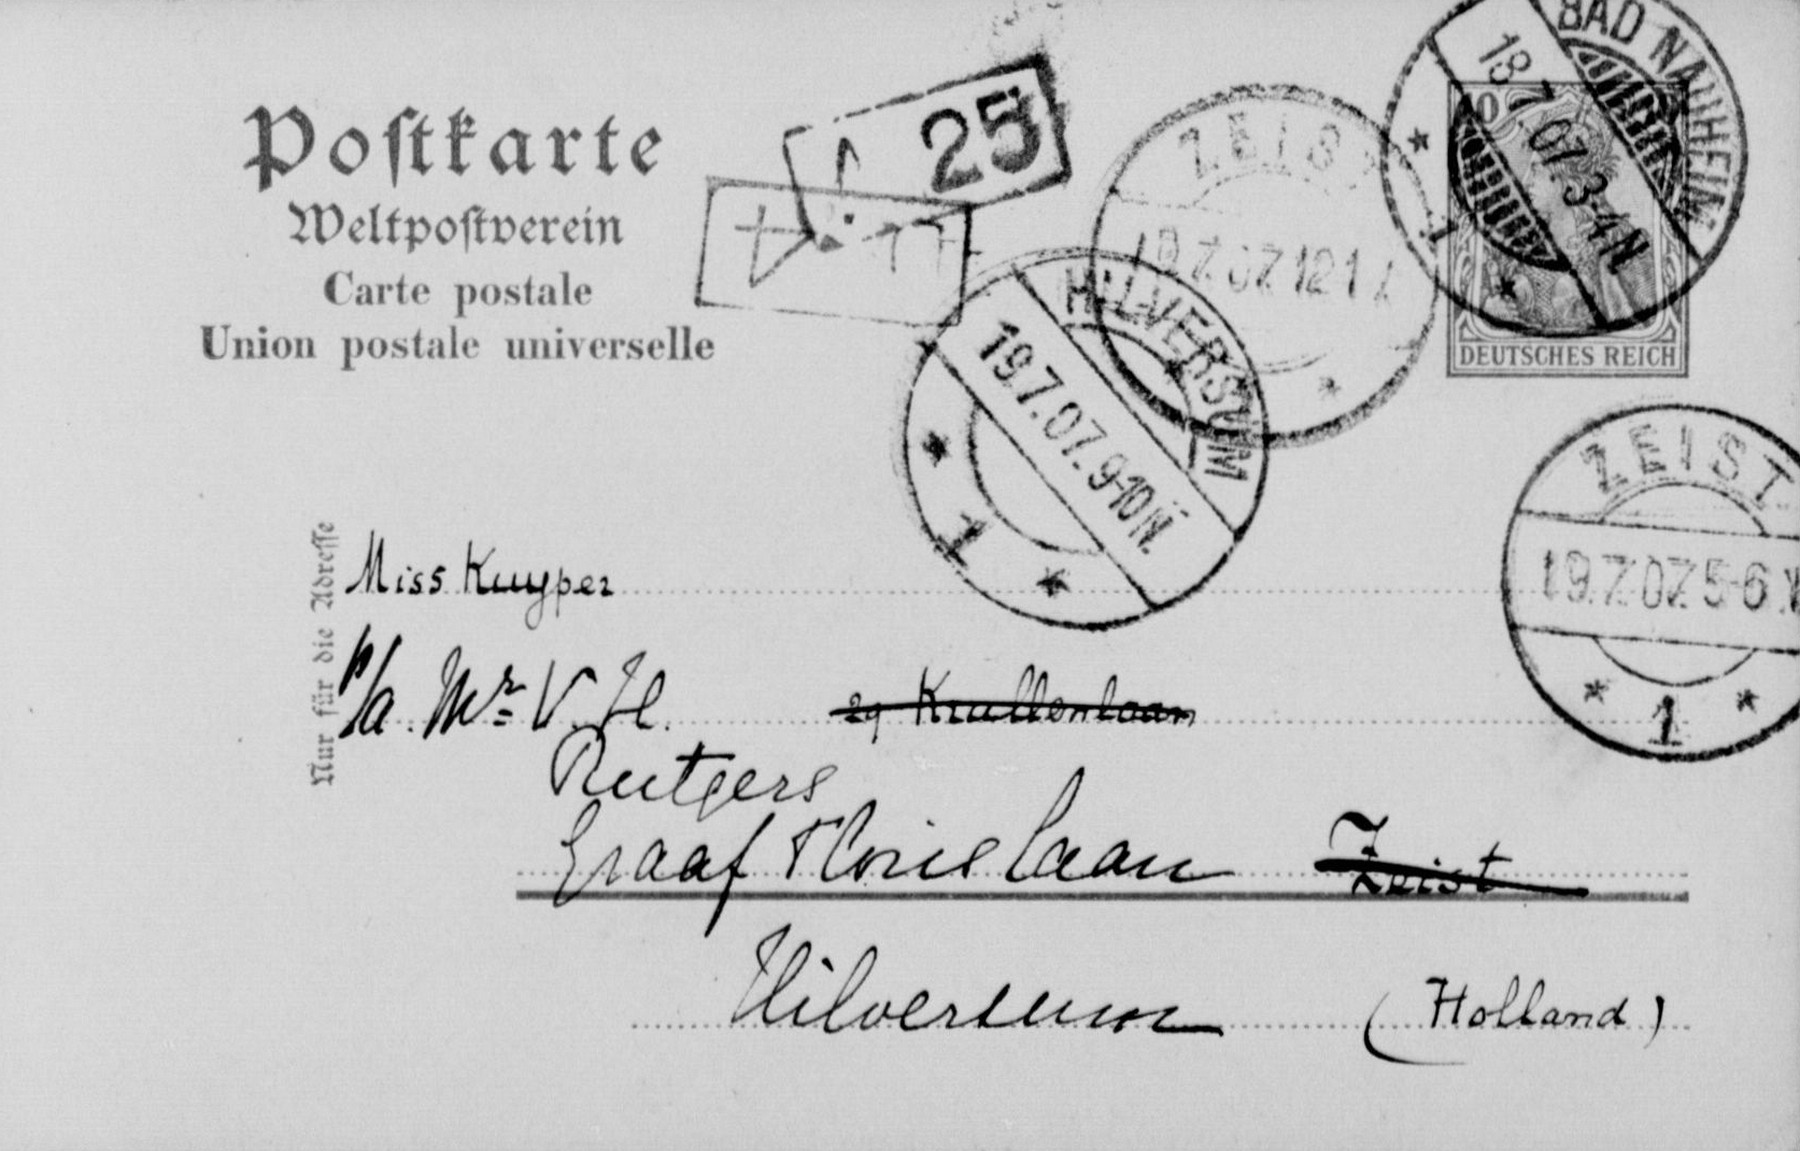 Postkarte
Weltpostverein
Carte postale
Union postale universelle
25
ZEIST
19.7.07.12-1
BAD NAUHEIM
18.7.07.3-4N
1
10
DEUTSCHES REICH
HILVERSUM
19.7.07.9-10N.
1
ZEIST.
19.7.07.5-6.N
1
Nur für die Adresse
Miss Kuyper
p/a. Mr. V. H. 29 Krullenlaan
Rutgers
Graaf Floris laan Zeist
Hilversum (Holland)